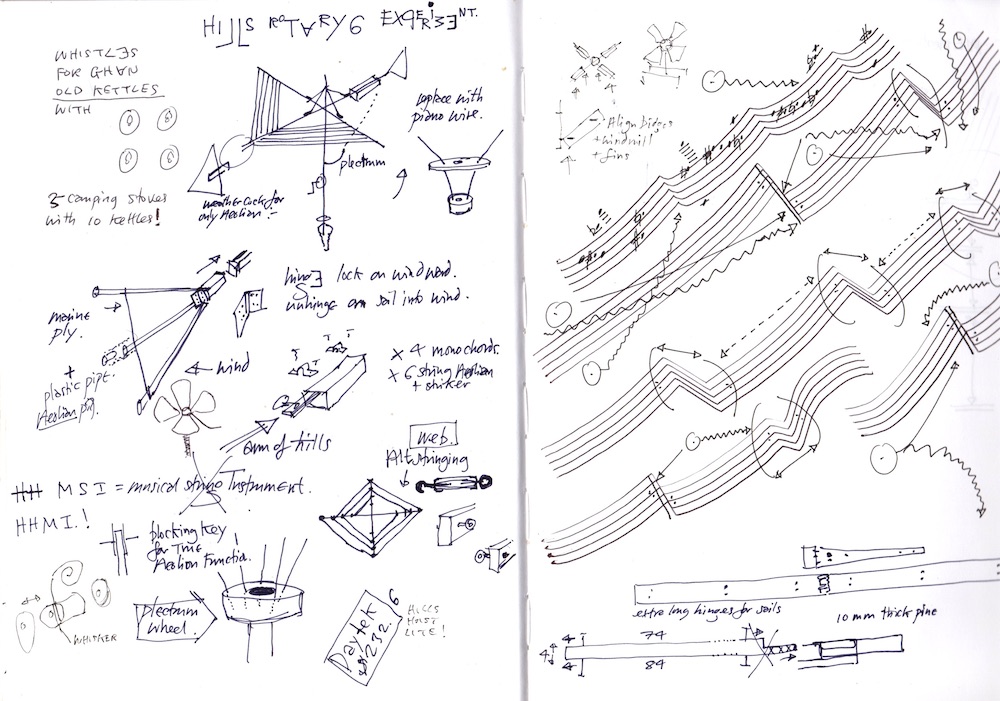 HILLS ROTARY 6 EXPERIMENT.
WHISTLES
FOR GHAN
OLD KETTLES
WITH
3 camping stoves
with 10 kettles!
replace with
piano wire.
plectrum
weather cock for
only Aeolian :-
hinge lock on windward.
unhinge on sail into wind.
marine
ply.
+
plastic pipe.
Aeolian
wind
x 4 monochords.
x 6 string Aeolian
+ striker
arm of hills
web.
Alt stringing
HH MSI = musical string Instrument.
HHMI.!
blocking key
for True
Aeolian Function.
plectrum
wheel.
WHISKER
Daytek
232.
6
HILLS
HOIST
LITE!
Align
+ windmill
+ fins
extra long hinges for sails
10 mm thick pine
4
74
4
84